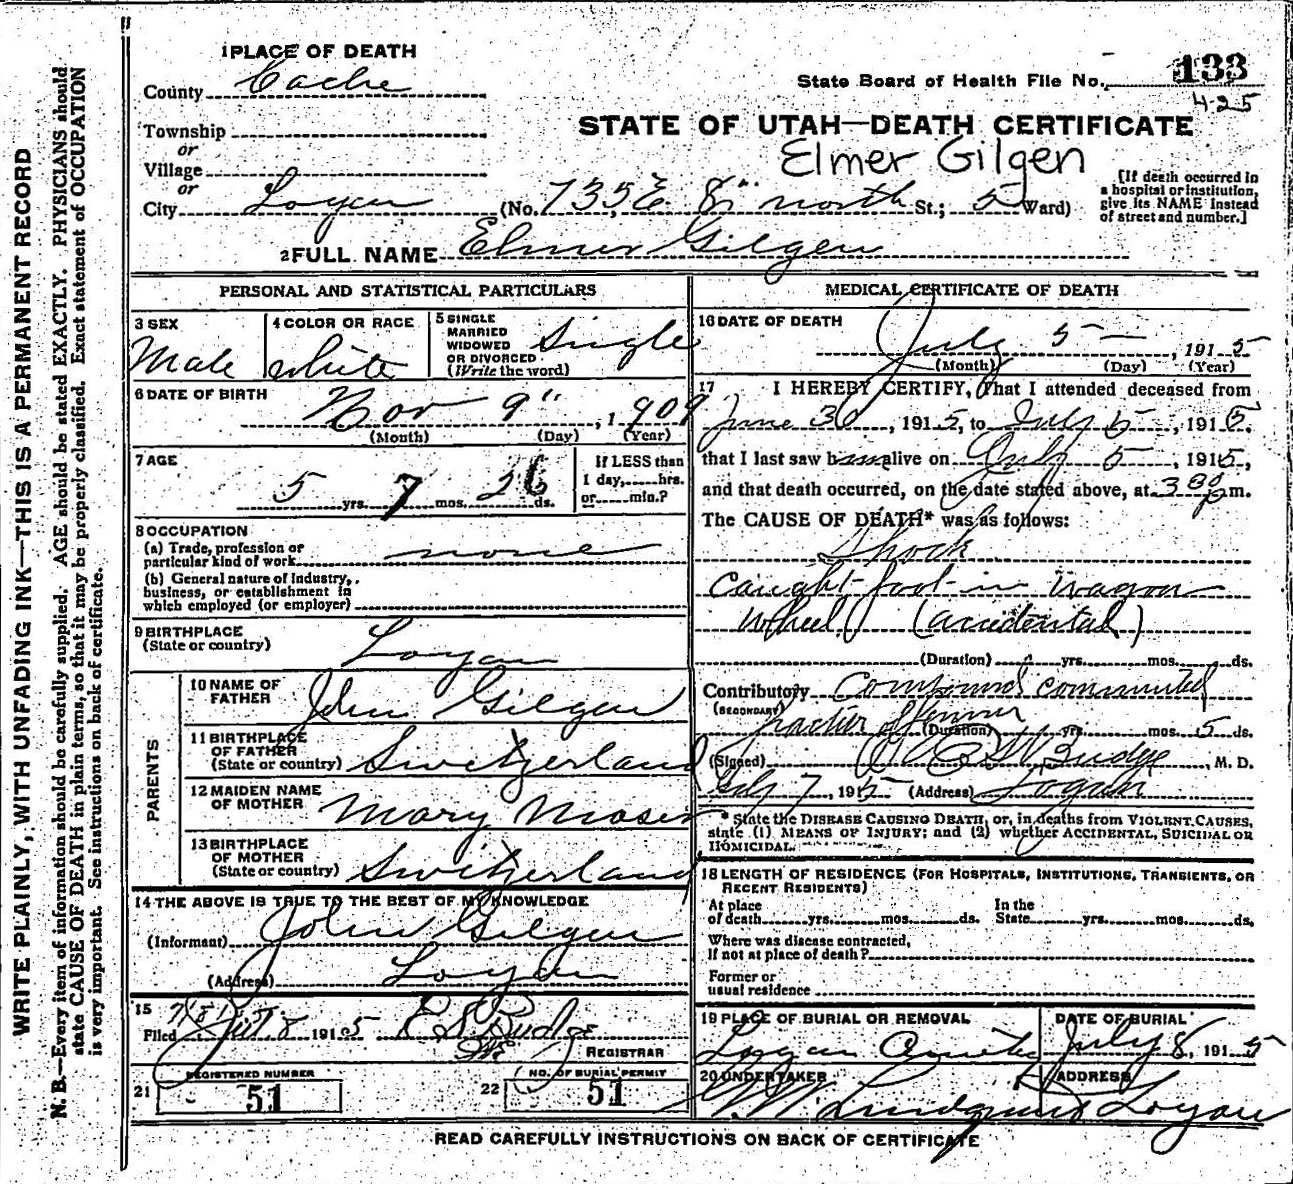 1 PLACE OF DEATH
County Cache
Township
or
Village
or
City Logan (No. 735 E 8" north St.; 5 Ward)
State Board of Health File No. 133
425
STATE OF UTAH—DEATH CERTIFICATE
Elmer Gilgen
[If death occurred in
a hospital or institution,
give its NAME instead
of street and number.]
2 FULL NAME Elmer Gilgen
PERSONAL AND STATISTICAL PARTICULARS
3 SEX
Male
4 COLOR OR RACE
white
5 SINGLE
MARRIED
WIDOWED
OR DIVORCED
(Write the word)
Single
6 DATE OF BIRTH
Nov 9", 1909
(Month) (Day) (Year)
7 AGE
5 yrs. 7 mos. 26 ds.
If LESS than
1 day,......hrs.
or......min.?
8 OCCUPATION
(a) Trade, profession or
particular kind of work none
(b) General nature of industry,
business, or establishment in
which employed (or employer)
9 BIRTHPLACE
(State or country) Logan
PARENTS
10 NAME OF
FATHER John Gilgen
11 BIRTHPLACE
OF FATHER
(State or country) Switzerland
12 MAIDEN NAME
OF MOTHER Mary Moser
13 BIRTHPLACE
OF MOTHER
(State or country) Switzerland
14 THE ABOVE IS TRUE TO THE BEST OF MY KNOWLEDGE
(Informant) John Gilgen
(Address) Logan
15
Filed 8 1915 E S Budge
REGISTRAR
21 REGISTERED NUMBER
51
22 NO. OF BURIAL PERMIT
51
MEDICAL CERTIFICATE OF DEATH
16 DATE OF DEATH
July 5, 1915
(Month) (Day) (Year)
17 I HEREBY CERTIFY, That I attended deceased from
June 30, 1915, to July 5, 1915.
that I last saw him alive on July 5, 1915,
and that death occurred, on the date stated above, at 3 30 p m.
The CAUSE OF DEATH* was as follows:
Shock
caught foot in wagon
wheel (accidental)
(Duration) yrs. mos. ds.
Contributory Compound comminuted
(SECONDARY) fractur femur
(Duration) yrs. mos. 5 ds.
(Signed) Budge, M. D.
July 7, 1915 (Address) Logan
* State the DISEASE CAUSING DEATH, or, in deaths from VIOLENT CAUSES,
state (1) MEANS OF INJURY; and (2) whether ACCIDENTAL, SUICIDAL OR
HOMICIDAL.
18 LENGTH OF RESIDENCE (FOR HOSPITALS, INSTITUTIONS, TRANSIENTS, OR
RECENT RESIDENTS)
At place
of death yrs. mos. ds.
In the
State yrs. mos. ds.
Where was disease contracted,
If not at place of death?
Former or
usual residence
19 PLACE OF BURIAL OR REMOVAL
Logan
DATE OF BURIAL
July 8, 1915
20 UNDERTAKER
Lundquist
ADDRESS
Logan
READ CAREFULLY INSTRUCTIONS ON BACK OF CERTIFICATE
WRITE PLAINLY, WITH UNFADING INK—THIS IS A PERMANENT RECORD
N. B.—Every item of information should be carefully supplied. AGE should be stated EXACTLY. PHYSICIANS should
state CAUSE OF DEATH in plain terms, so that it may be properly classified. Exact statement of OCCUPATION
is very important. See instructions on back of certificate.